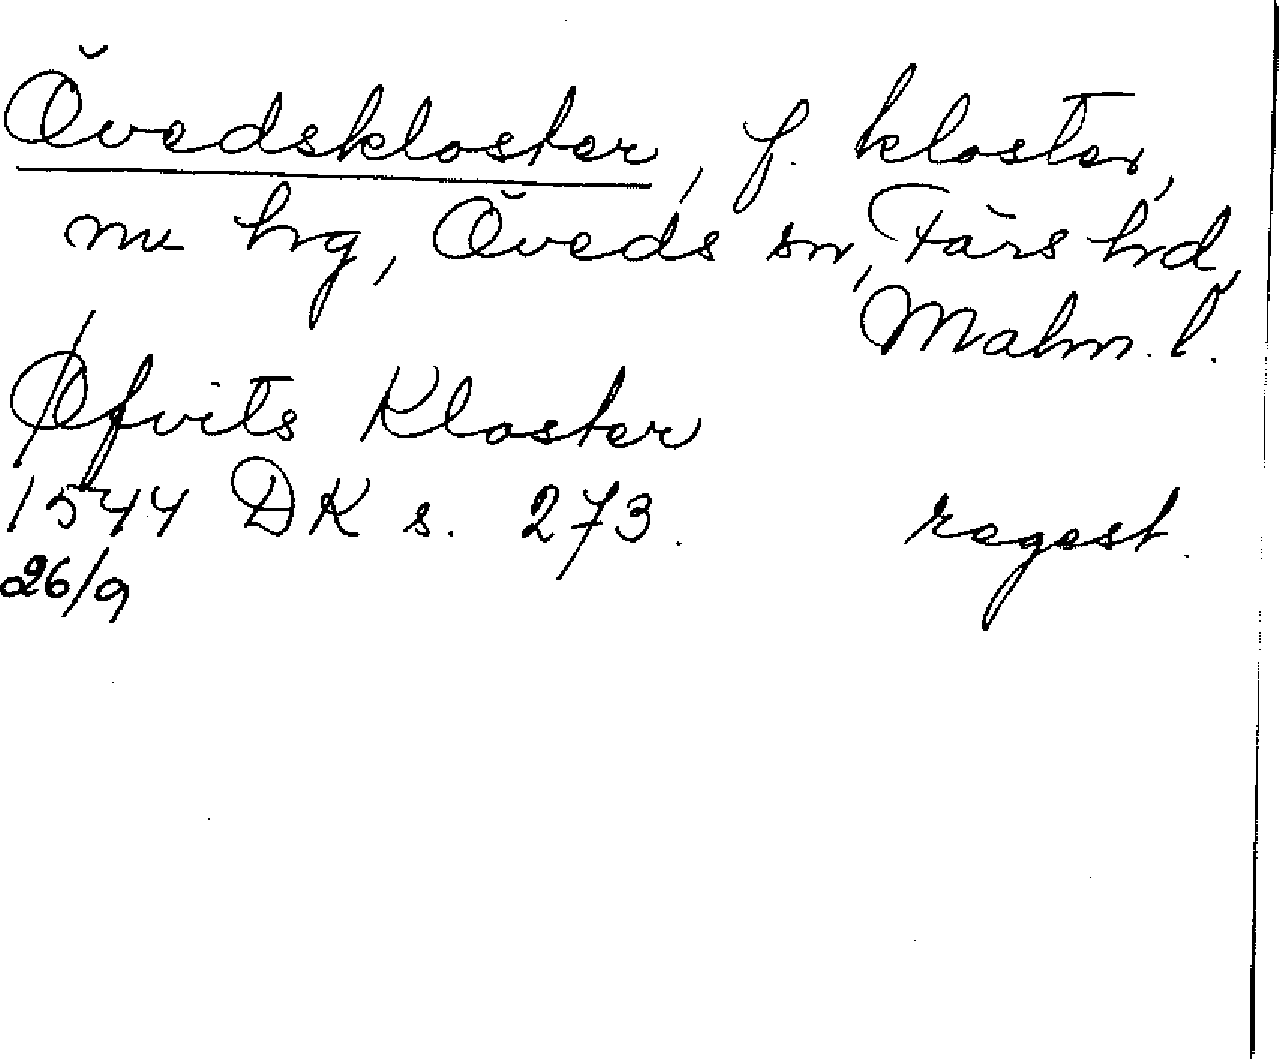 Övedskloster, f. kloster,
nu hrg, Öveds sn, Färs hrd,
Malm. l.
Øfvits Kloster
1544 DK s. 273. regest.
26/9